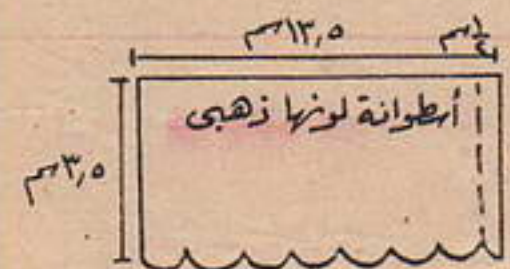 ١٣,٥ سم
١/٢ سم
أسطوانة لونها ذهبى
٣,٥ سم